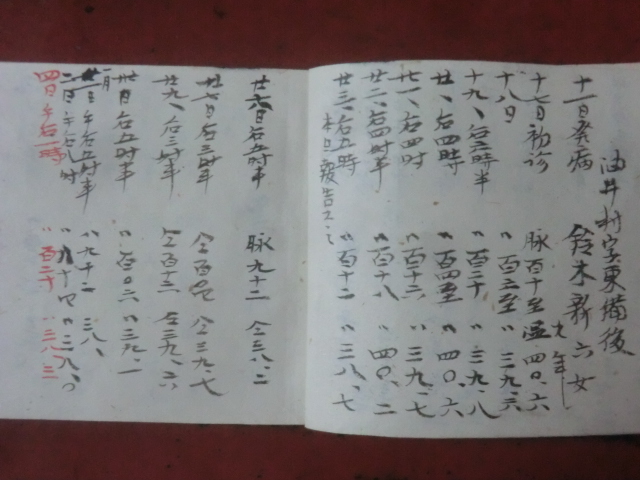 油井村字東備後
鈴木新六女
九年
十一日発病
十七日初診 脉百十至 温四〇、六
十八日 〃百五至 〃三九、六
十九、右三時半 〃百二十 〃三九、八
廿、右四時 〃百四至 〃四〇、六
廿一、右四時 〃百十六 〃三九、七
廿二、右四時半 〃百十八 〃四〇、二
廿三、右五時 〃百十二 〃三八、七
廿六日右五時半 脉九十二 仝三八、二
廿七日右三時半 仝三九、七
廿九、右三時半 仝百十二 仝三九、六
卅日右五時半 〃百〇六 〃三九、一
右五時半 〃九十二 三八、
二日 〃九十四 〃三八、〇
四日午右一時 〃百二十 〃三八、三